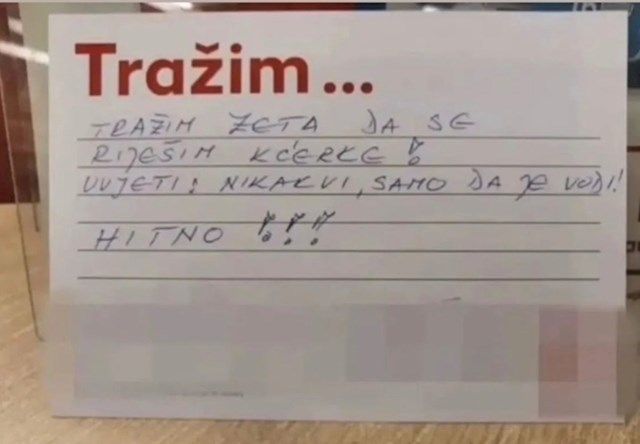 Tražim...
TRAŽIM ZETA DA SE
RIJEŠIM KĆERKE!
UVJETI: NIKAKVI, SAMO DA JE VODI!
HITNO !!!